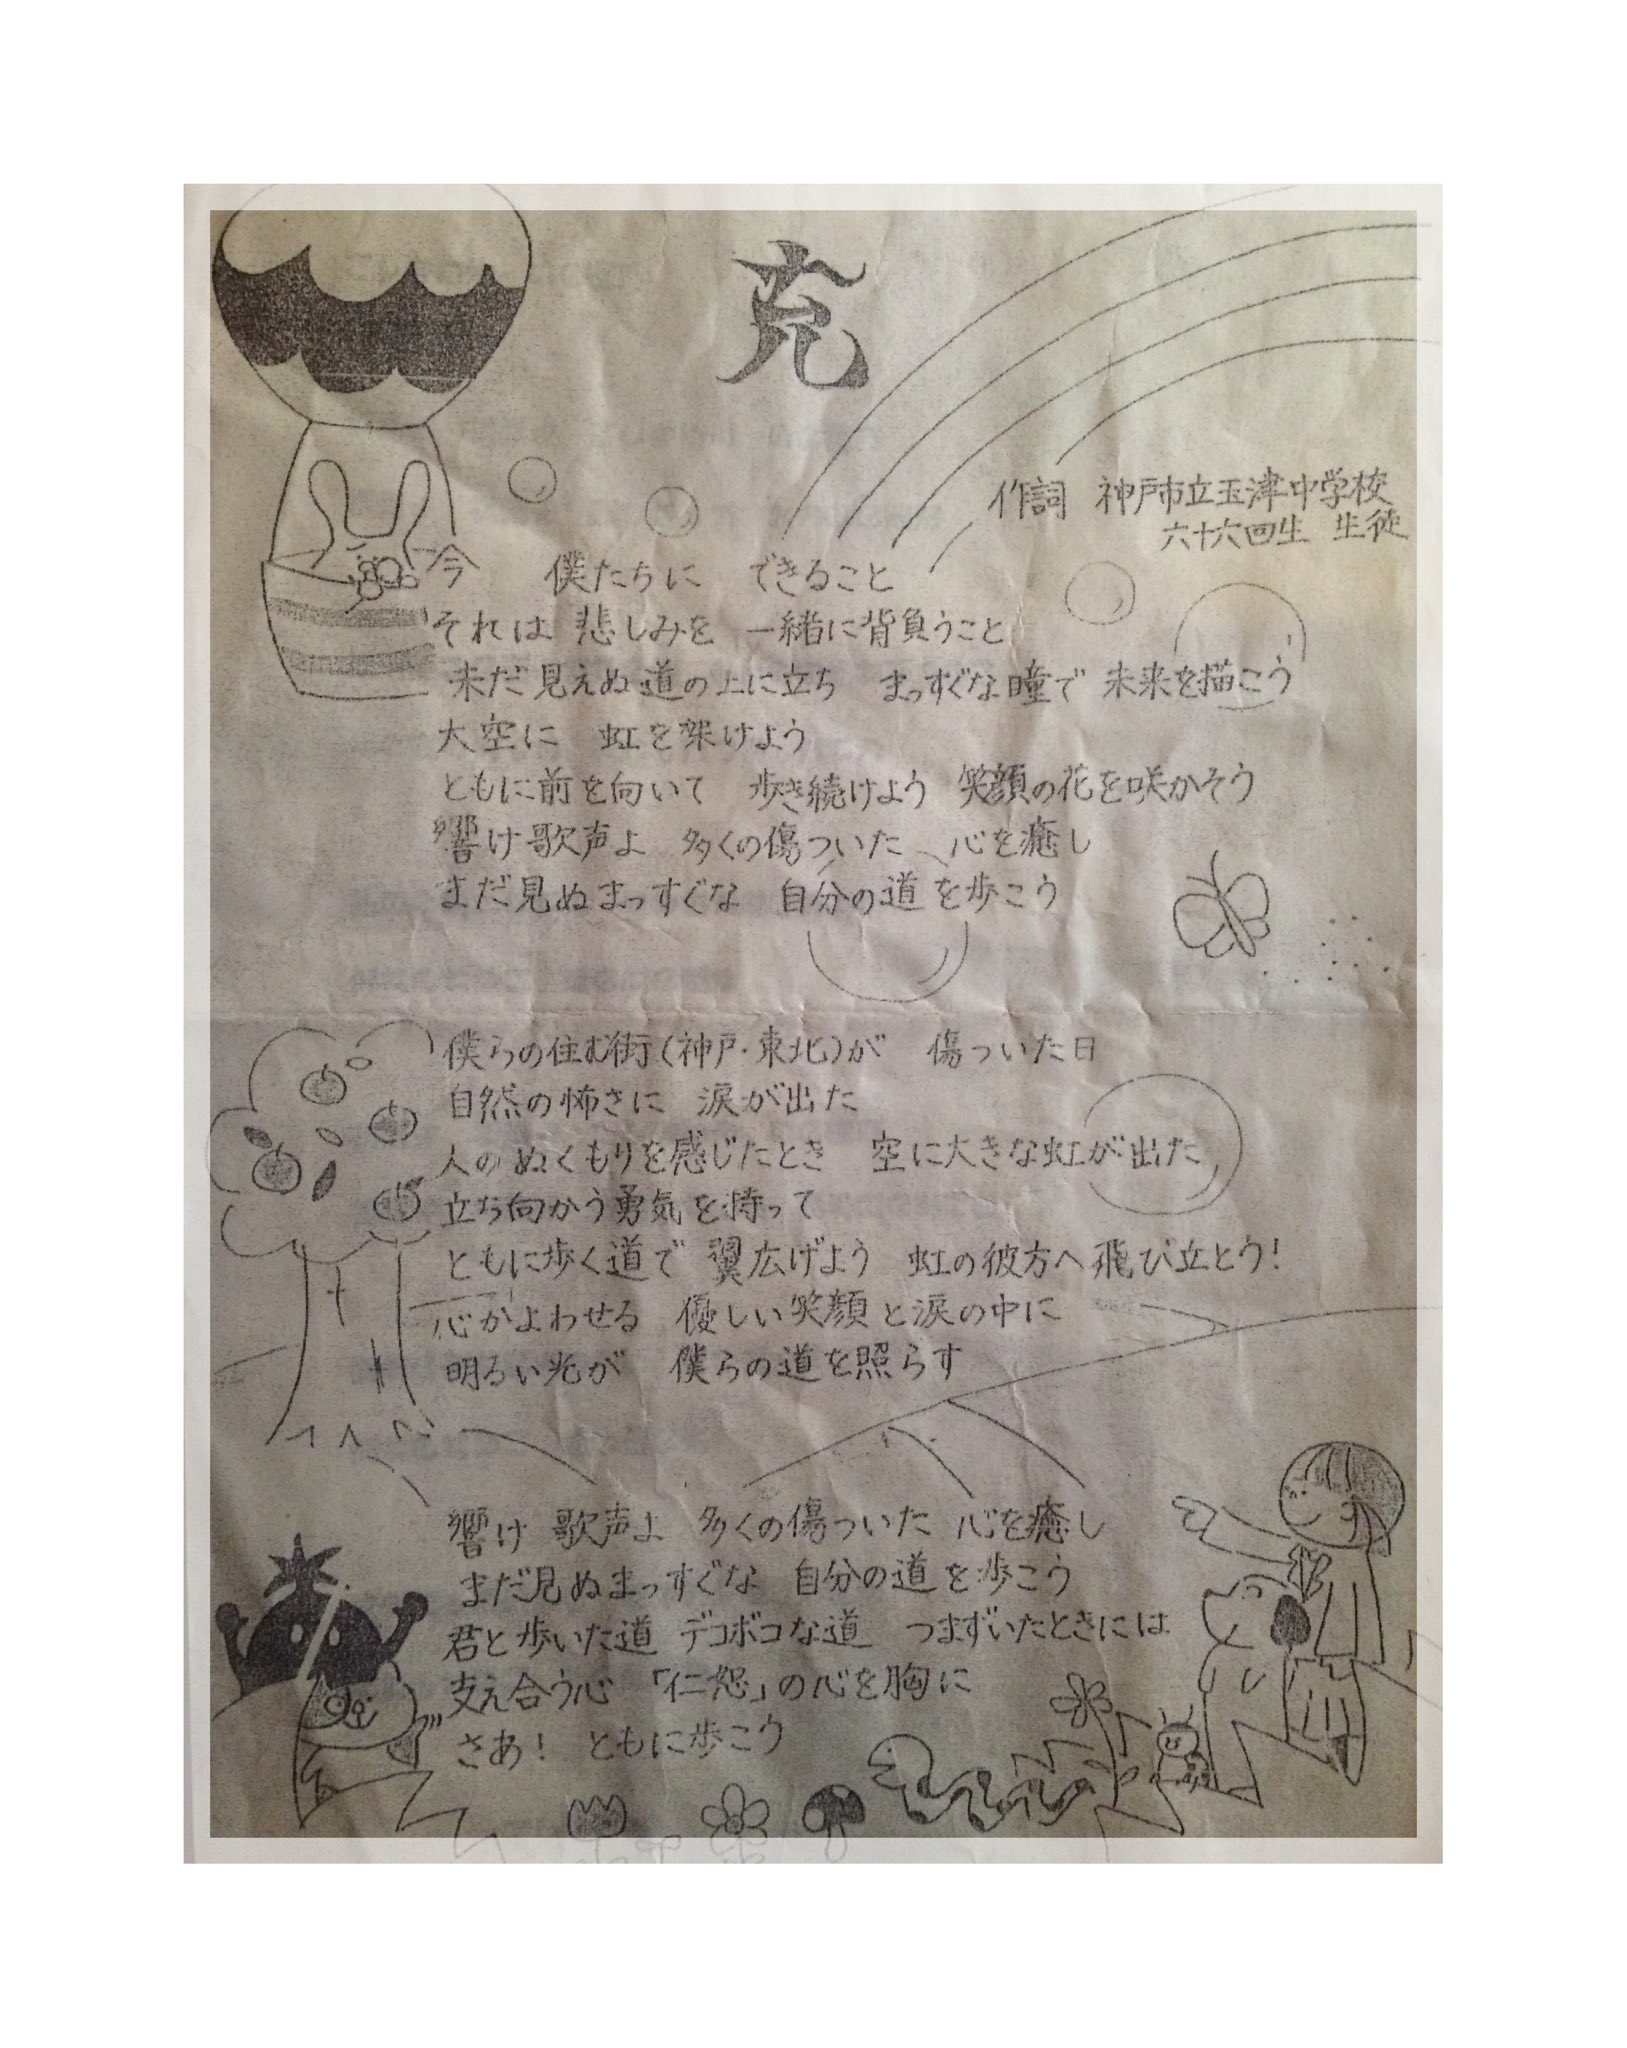 克
作詞 神戸市立玉津中学校
六十六回生 生徒
今 僕たちに できること
それは 悲しみを 一緒に背負うこと
未だ見えぬ道の上に立ち まっすぐな瞳で 未来を描こう
大空に 虹を架けよう
ともに前を向いて 歩き続けよう 笑顔の花を咲かそう
響け歌声よ 多くの傷ついた 心を癒し
まだ見ぬまっすぐな 自分の道を歩こう
僕らの住む街(神戸・東北)が 傷ついた日
自然の怖さに 涙が出た
人のぬくもりを感じたとき 空に大きな虹が出た
立ち向かう勇気を持って
ともに歩く道で 翼広げよう 虹の彼方へ飛び立とう!
心かよわせる 優しい笑顔と涙の中に
明るい光が 僕らの道を照らす
響け 歌声よ 多くの傷ついた 心を癒し
まだ見ぬまっすぐな 自分の道を歩こう
君と歩いた道 デコボコな道 つまずいたときには
支え合う心 「仁恕」の心を胸に
さあ! ともに歩こう